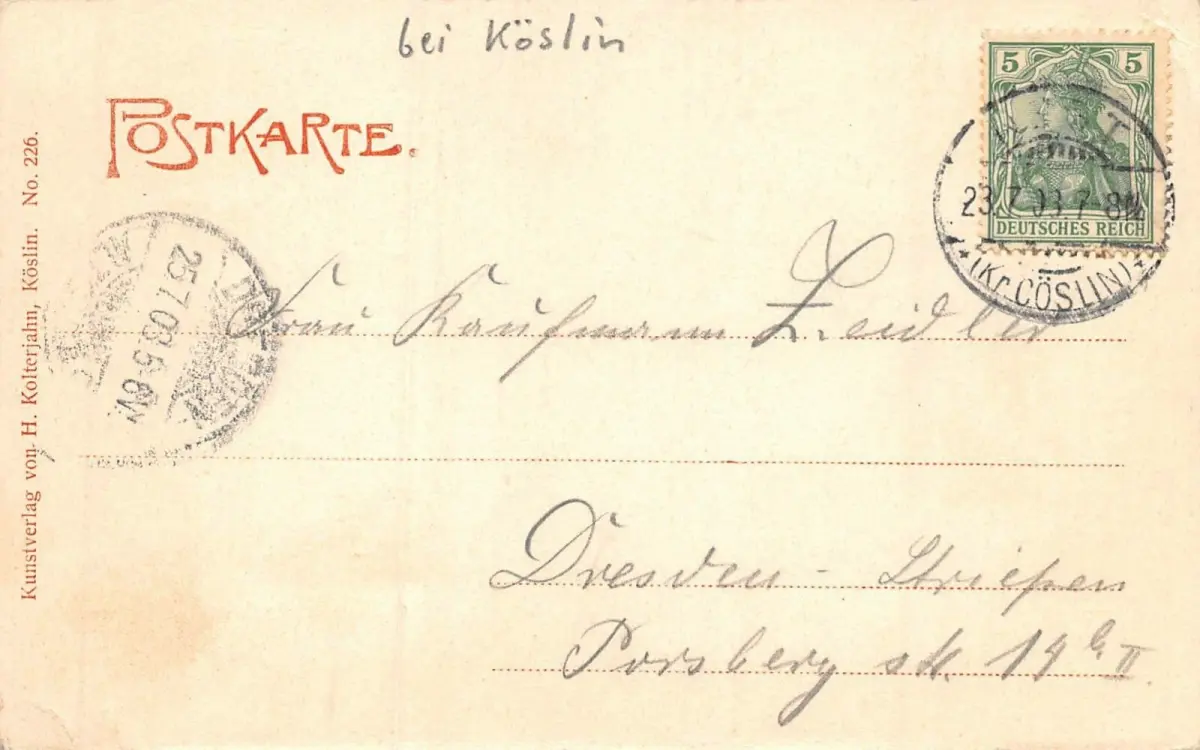 bei Köslin
POSTKARTE.
5 5
DEUTSCHES REICH
23.7.03.7-8N.
*(Kr. CÖSLIN)*
25.7.03.5-6V.
Frau Kaufmann Zeidler
Dresden - Striesen
Porsberg str. 19 b II.
Kunstverlag von H. Kolterjahn, Köslin. No. 226.